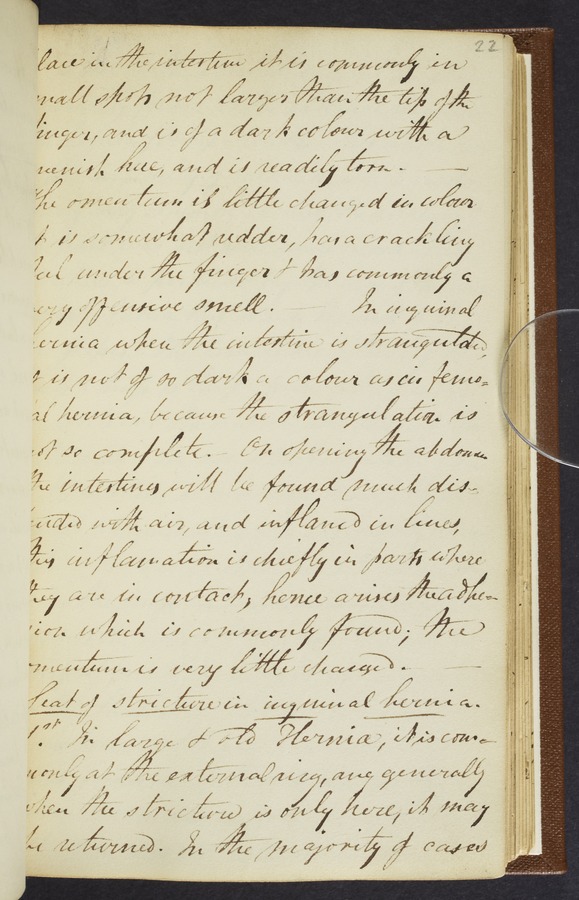 22
lace in the intestine it is commonly in
mall spots not larger than the tip of the
finger, and is of a dark colour with a
reenish hue, and is readily torn. —
The omentum is little changed in colour
it is somewhat redder, has a crackling
feel under the finger & has commonly a
very offensive smell. — In inguinal
ernia when the intestine is strangulated,
is not of so dark a colour as in femo=
al hernia, because the strangulation is
ot so complete. — On opening the abdomen
the intestines will be found much dis=
ended with air, and inflamed in lines,
this inflamation is chiefly in parts where
they are in contact, hence arises the adhe=
sion which is commonly found; the
omentum is very little changed. —
Seat of stricture in inguinal hernia.
1st. In large & old Hernia, it is com=
monly at the external ring, and generally
when the stricture is only here, it may
be returned. In the majority of cases